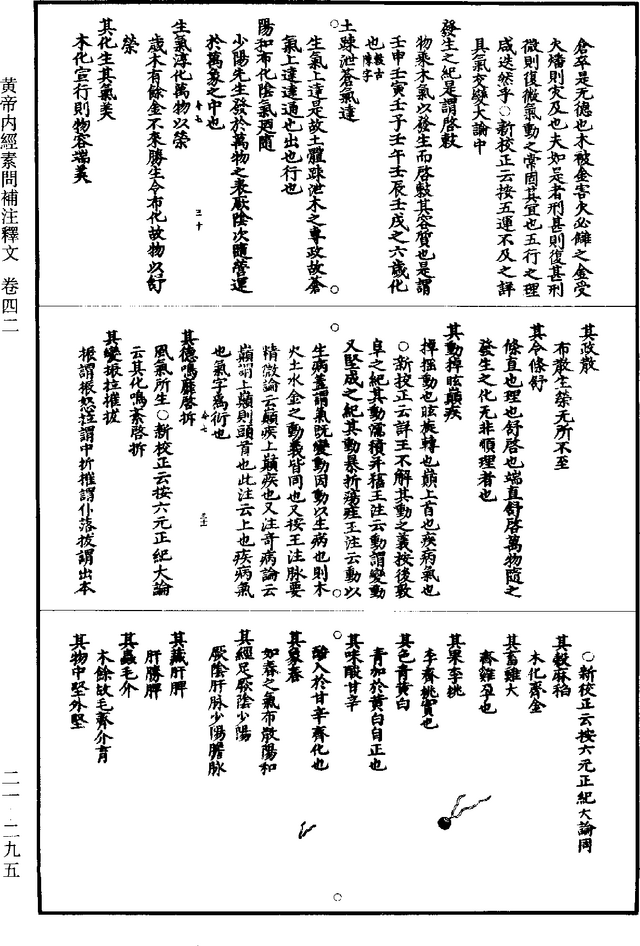 倉卒是无德也木被金害火必讎之金受
火燔則灾及也夫如是者刑甚則復甚刑
微則復微氣動之常固其宜也五行之理
咸迭然乎○新校正云按五運不及之詳
具氣交變大論中
發生之紀是謂啓敕
物乘木氣以發生而啓敕其容質也是謂
壬申壬寅壬子壬午壬辰壬戌之六歲化
也敕古陳字
土踈泄蒼氣達
生氣上達是故土體踈泄木之專政故蒼
氣上達達通也出也行也
陽和布化陰氣廼隨
少陽先生發於萬物之表厥陰次隨營運
於萬象之中也
生氣淳化萬物以榮
歲木有餘金不來勝生令布化故物以舒
榮
其化生其氣美
木化宣行則物容端美
其政散
布散生榮无所不至
其令條舒
條直也理也舒啓也端直舒啓萬物隨之
發生之化无非順理者也
其動掉眩巔疾
掉摇動也眩旋轉也巔上首也疾病氣也
○新校正云詳王不解其動之義按後敦
阜之紀其動濡積并稸王注云動謂變動
又堅成之紀其動暴折瘍疰王注云動以
生病蓋謂氣既變動因動以生病也則木
火土水金之動義皆同也又按王注脉要
精微論云巔疾上巔疾也又注奇病論云
巔謂上巔則頭首也此注云上也疾病氣
也氣字爲衍也
其德鳴靡啓坼
風氣所生○新校正云按六元正紀大論
云其化鳴紊啓坼
其變振拉摧拔
振謂振怒拉謂中折摧謂仆落拔謂出本
○新校正云按六元正紀大論同
其穀麻稻
木化齊金
其畜雞犬
齊雞孕也
其果李桃
李齊桃實也
其色青黄白
青加於黄白自正也
其味酸甘辛
酸入於甘辛齊化也
其象春
如春之氣布散陽和
其經足厥陰少陽
厥陰肝脉少陽膽脉
其藏肝脾
肝勝脾
其蟲毛介
木餘故毛齊介育
其物中堅外堅
黄帝内經素問補注釋文 卷四二
二一·二九五